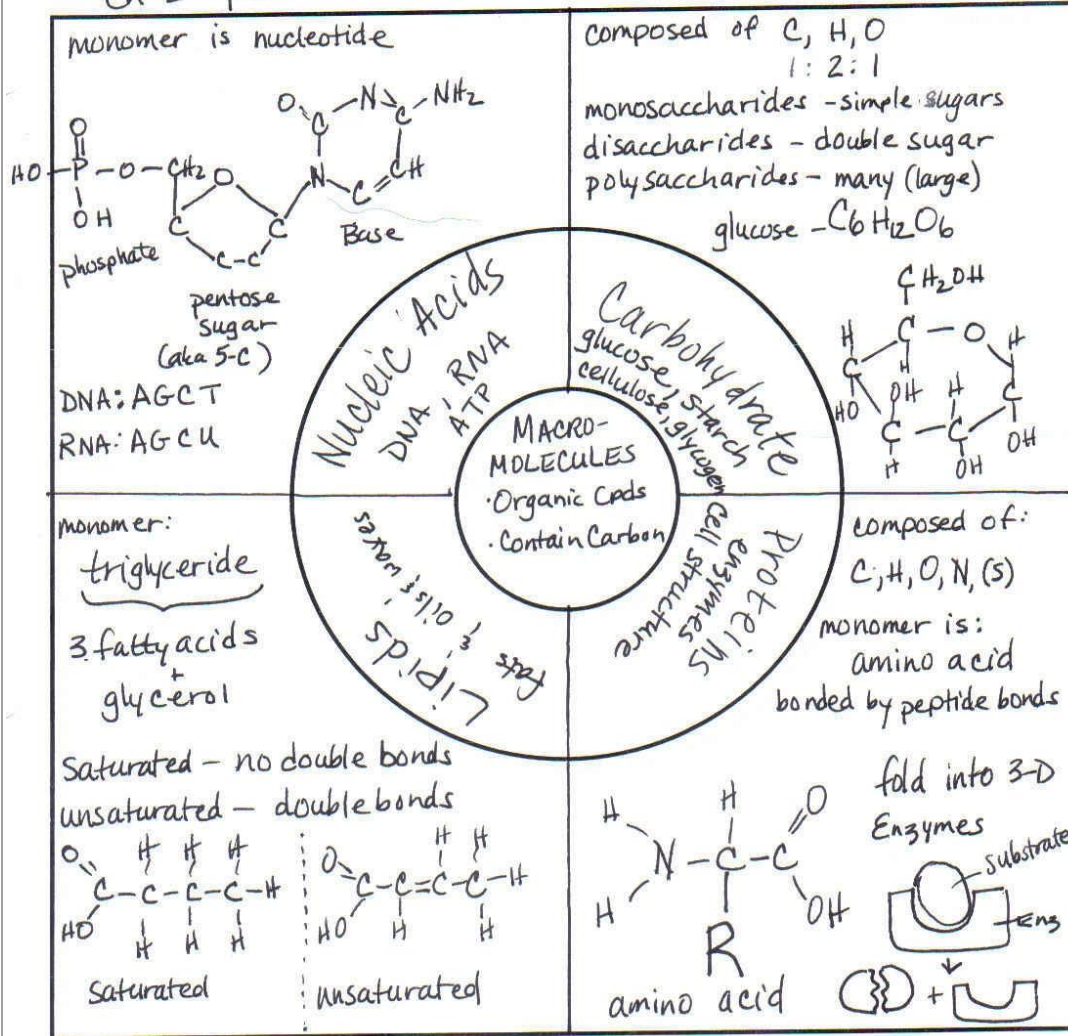 monomer is nucleotide
O
N
NH2
C
C
O
HO-P-O-CH2
O
N
C
CH
OH
C
C
Base
phosphate
C-C
pentose
sugar
(aka 5-C)
DNA: AGCT
RNA: AGCU
composed of C, H, O
1:2:1
monosaccharides - simple sugars
disaccharides - double sugar
polysaccharides - many (large)
glucose - C6H12O6
CH2OH
H
C - O
H
C
H
C
HO
OH
H
C - C
OH
H
OH
Nucleic Acids
DNA, RNA
ATP
Carbohydrate
glucose, starch
cellulose, glycogen
MACRO-
MOLECULES
·Organic Cpds
·Contain Carbon
Lipids
fats & oils & waxes
Proteins
enzymes
cell structure
monomer:
triglyceride
3 fatty acids
+
glycerol
Saturated - no double bonds
unsaturated - double bonds
O
H H H
C-C-C-C-H
HO
H H H
saturated
O
H H
C-C=C-C-H
HO
H
H
unsaturated
composed of:
C, H, O, N, (S)
monomer is:
amino acid
bonded by peptide bonds
H
H
O
N-C-C
H
R
OH
amino acid
fold into 3-D
Enzymes
substrate
Enz
+